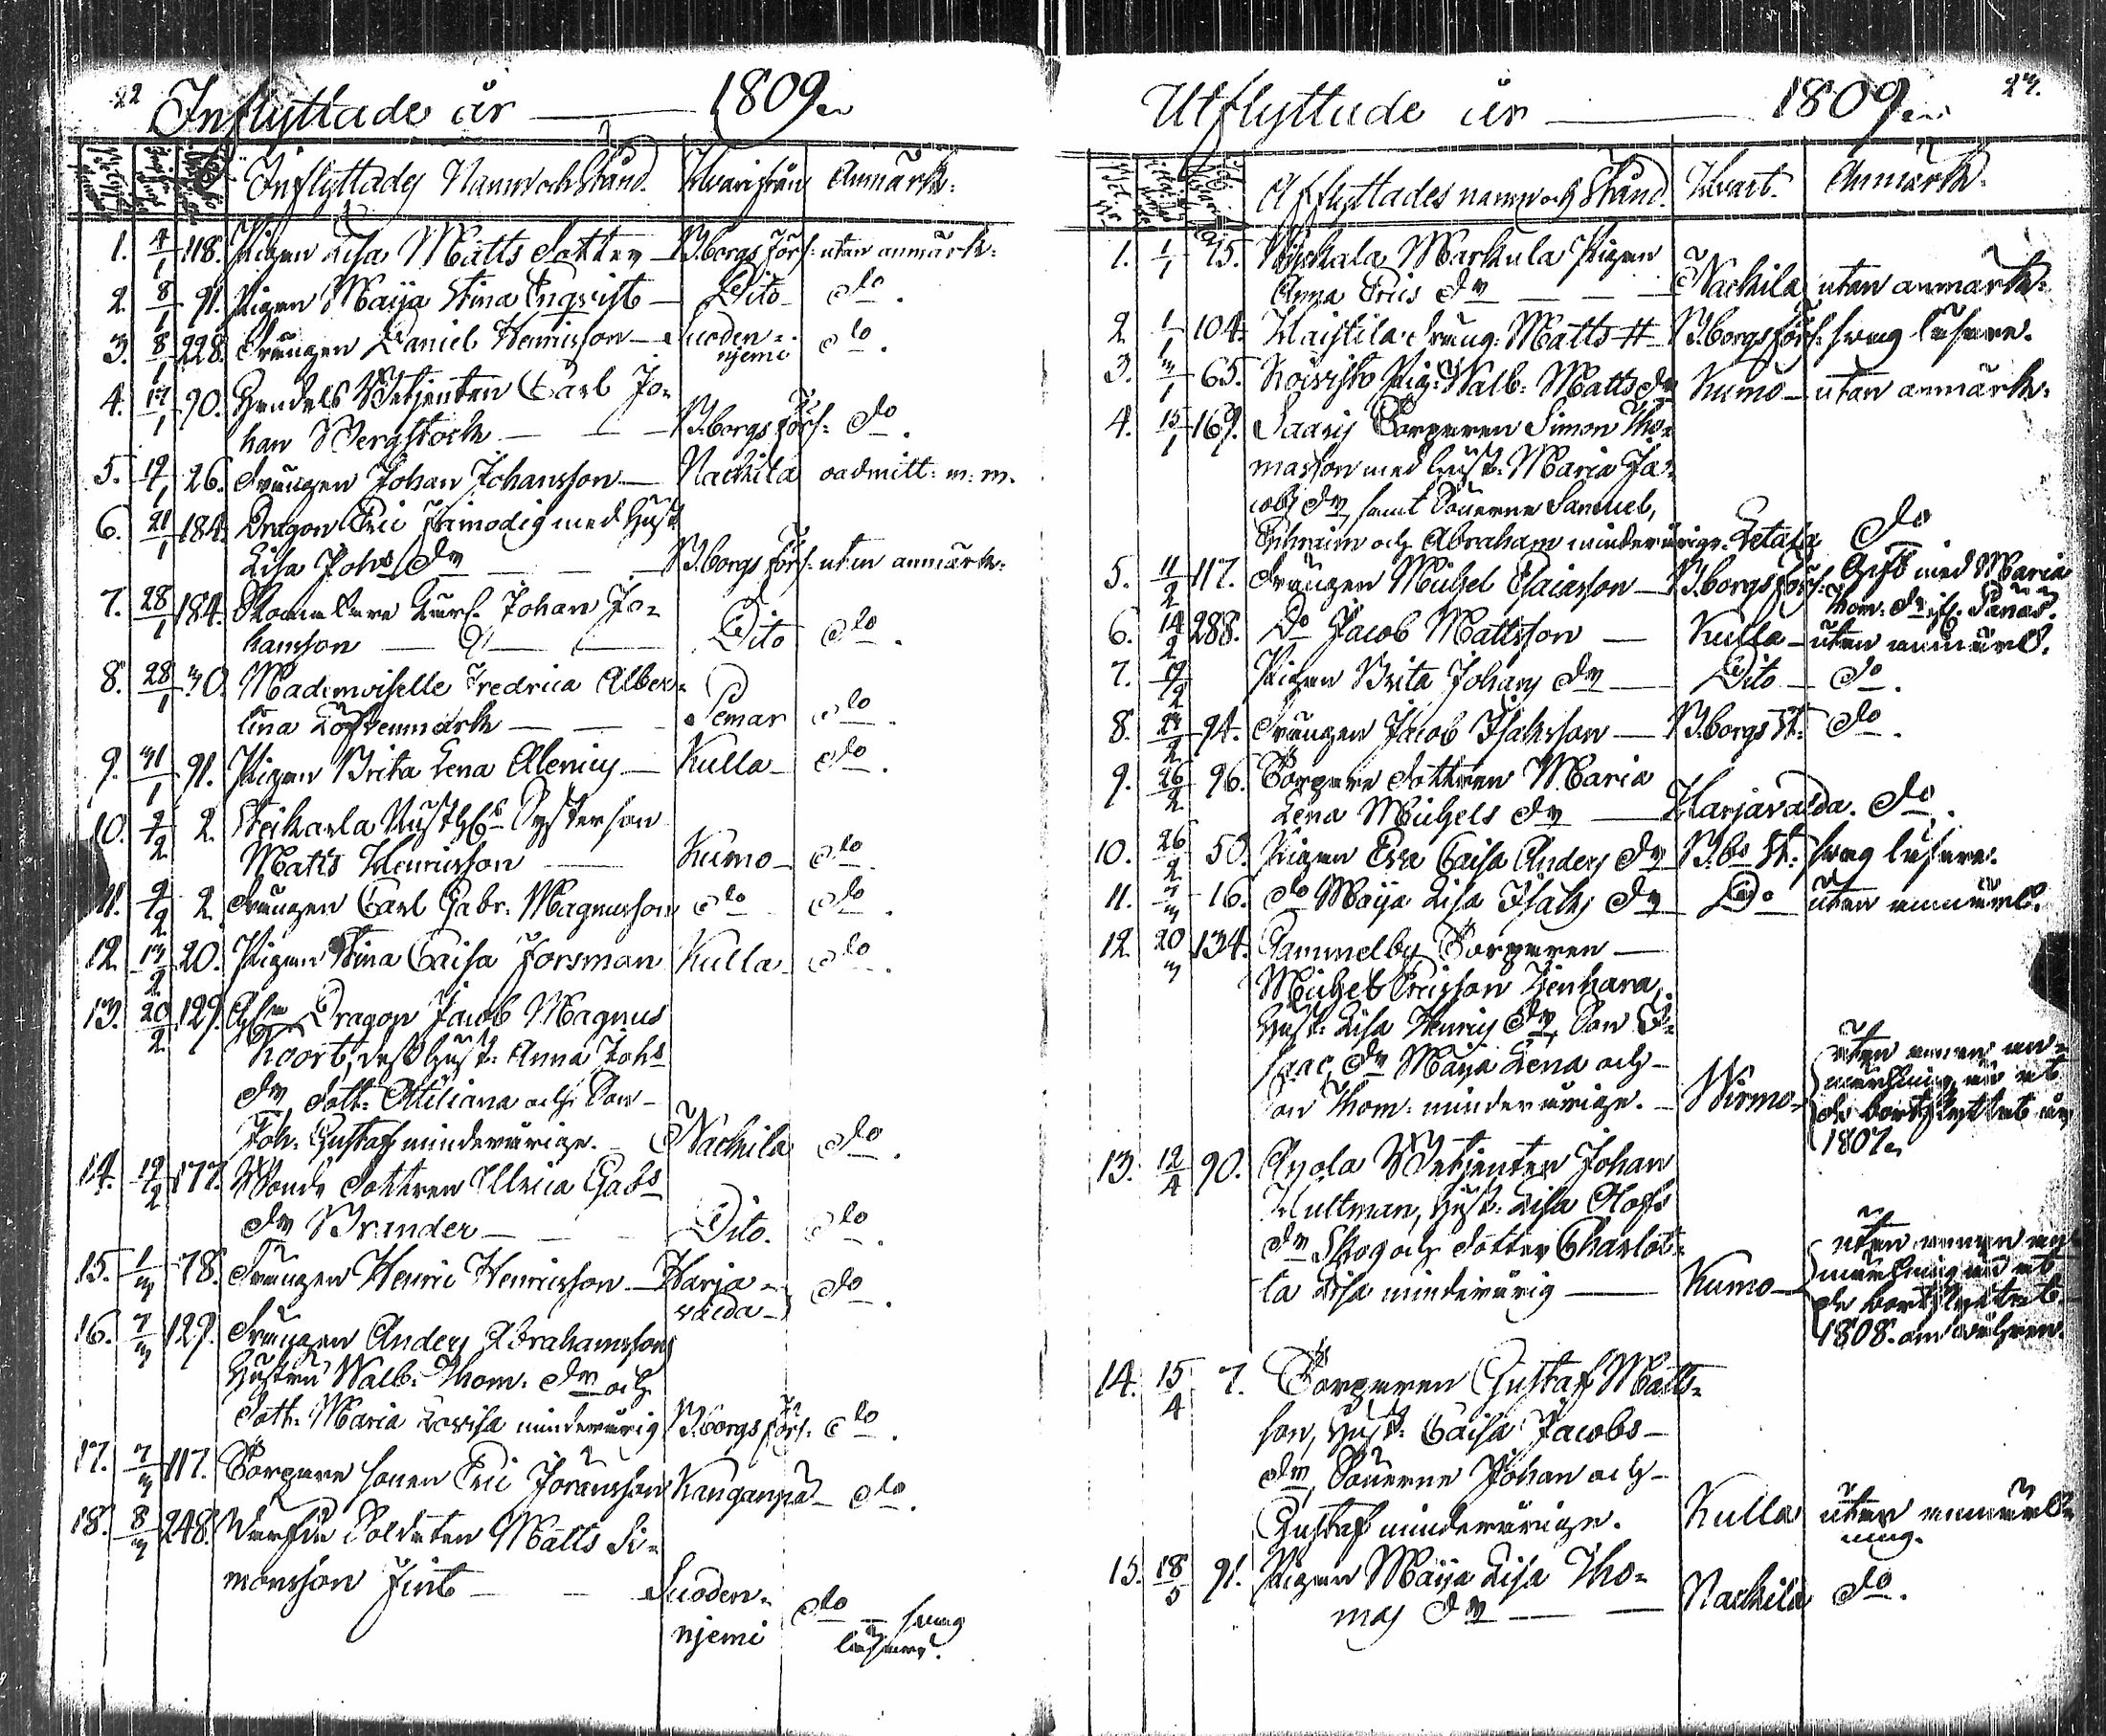 22
Inflyttade år 1809
Inflyttades Namn och Stånd. Hvarifrån Anmärk:
1. 4/1 118. Pigan Lisa Matts dotter B.borgs förs: utan anmärk:
2. 8/1 91. Pigan Maija Stina Enqvist Dito do.
3. 8/1 228. Drängen Daniel Henricsson Suoden=
njemi do.
4. 17/1 90. Carl Jo=
han Bergstock B.borgs förs: do.
5. 19/1 26. Drängen Johan Johansson Nackila oadmitt: m: m.
6. 21/1 184. Dragon Eric Frimodig med Hust.
Lisa Johs dr B.borgs förs: utan anmärk:
7. 28/1 184. Johan Jo=
hansson Dito do.
8. 28/1 30. Mademoiselle Fredrica Alber=
tina Löfvenmark Pemar do.
9. 31/1 91. Pigan Brita Lena Alenius Kulla do.
10. 2/2 2. Systerson
Matts Henricsson Kumo do.
11. 2/2 2. Drängen Carl Gabr. Magnusson do do.
12. 13/2 20. Pigan Stina Caisa Forsman Kulla do.
13. 20/2 129. Dragon Jacob Magnus
Koort, dess Hust: Anna Johs
dr, dott: Ottiliana och Son
Joh: Gustaf minderårige. Nackila do.
14. 19/2 177. Bonde dottren Ulrica Gabs
dr Brander Dito. do.
15. 1/3 78. Drängen Henric Henricsson Harja=
valda do.
16. 7/3 129. Drängen Anders Abrahamsson
Hustru Walb: Thom: dr och
dott: Maria Lovisa minderårig B.borgs förs: do.
17. 7/3 117. Torpare sonen Eric Jöransson Kanganpä do.
18. 8/3 248. Soldaten Matts Si=
monsson Fint Suoden=
njemi do svag
läsare.
23.
Utflyttade år 1809
Afflyttades namn och Stånd. Hvart. Anmärk.
1. 1/1 15. Markula Pigan
Anna Erics dr Nackila utan anmärk:
2. 1/1 104. Haistila Dräng: Matts H B.borgs förs: svag läsare.
3. 3/1 65. Koivisto Pig: Walb: Matts dr Kumo utan anmärk:
4. 15/1 169. Saaris Torparen Simon Tho=
masson med hust: Maria Ja=
cobs dr samt Sönerne Samuel,
Ephraim och Abraham minderårige. Letala do
5. 11/2 117. Drängen Michel Esaiasson B.borgs förs: Gift med Maria
Thom: dr
6. 14/2 288. Do Jacob Mattsson Kulla utan anmärk.
7. 19/2 Pigan Brita Johans dr Dito do.
8. 23/2 94. Drängen Jacob Isaksson B.borgs St: do.
9. 26/2 96. Torpare dottren Maria
Lena Michels dr Harjavalda. do.
10. 26/2 50. Pigan Eva Caisa Anders dr B.bs St: svag läsare.
11. 3/3 16. do Maija Lisa Isaks dr Do utan anmärk.
12. 20/3 134. Gammelby Torparen
Michel Ericsson
Hust: Lisa Henrics dr, Son I=
saac, dr Maija Lena och
Son Thom: minderårige. Wirmo utan annan an=
märkning, än at
de bortflyttat år
1807.
13. 12/4 90. Johan
Hultman, Hust: Lisa Olofs
dr Skog och dotter Charlot=
ta Lisa minderårig Kumo utan annan an=
märkning än at
de bortflyttat
1808. om våhren.
14. 15/4 7. Torparen Gustaf Matts=
son, Hust: Caisa Jacobs
dr, Sönerne Johan och
Gustaf minderårige. Kulla utan anmärk=
ning.
15. 18/5 91. Pigan Maija Lisa Tho=
mas dr Nackila do.